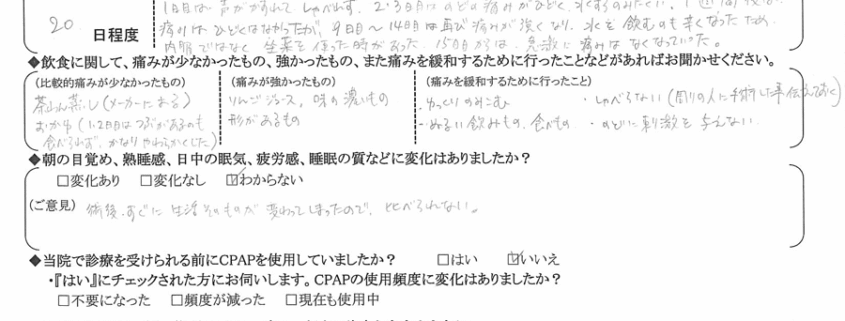 1日目は声がかすれてしゃべれず、2・3日目はのどの痛みがひどく、水
20 日程度
痛りはひどくはなかったが、9日目〜14日目は再び痛みが強くなり、水を飲むのも辛くなったため
内服ではなく 坐薬を使った時があった。15日目からは、急激に痛みはなくなっていった。
◆飲食に関して、痛みが少なかったもの、強かったもの、また痛みを緩和するために行ったことなどがあればお聞かせください。
(比較的痛みが少なかったもの)
茶わん蒸し(メーカーによる)
おかゆ(1・2日目はつぶがあるのも
食べられず、かなりやわらかくした)
(痛みが強かったもの)
りんごジュース、味の濃いもの
形があるもの
(痛みを緩和するために行ったこと)
・ゆっくりのみこむ ・しゃべらない(周りの人に手術した事伝えておく)
・ぬるい飲みもの、食べもの ・のどに刺激を与えない
◆朝の目覚め、熟睡感、日中の眠気、疲労感、睡眠の質などに変化はありましたか？
□変化あり □変化なし ☑わからない
(ご意見) 術後、すぐに生活そのものが変わってしまったので、比べられない。
◆当院で診療を受けられる前にCPAPを使用していましたか？ □はい ☑いいえ
・『はい』にチェックされた方にお伺いします。CPAPの使用頻度に変化はありましたか？
□不要になった □頻度が減った □現在も使用中